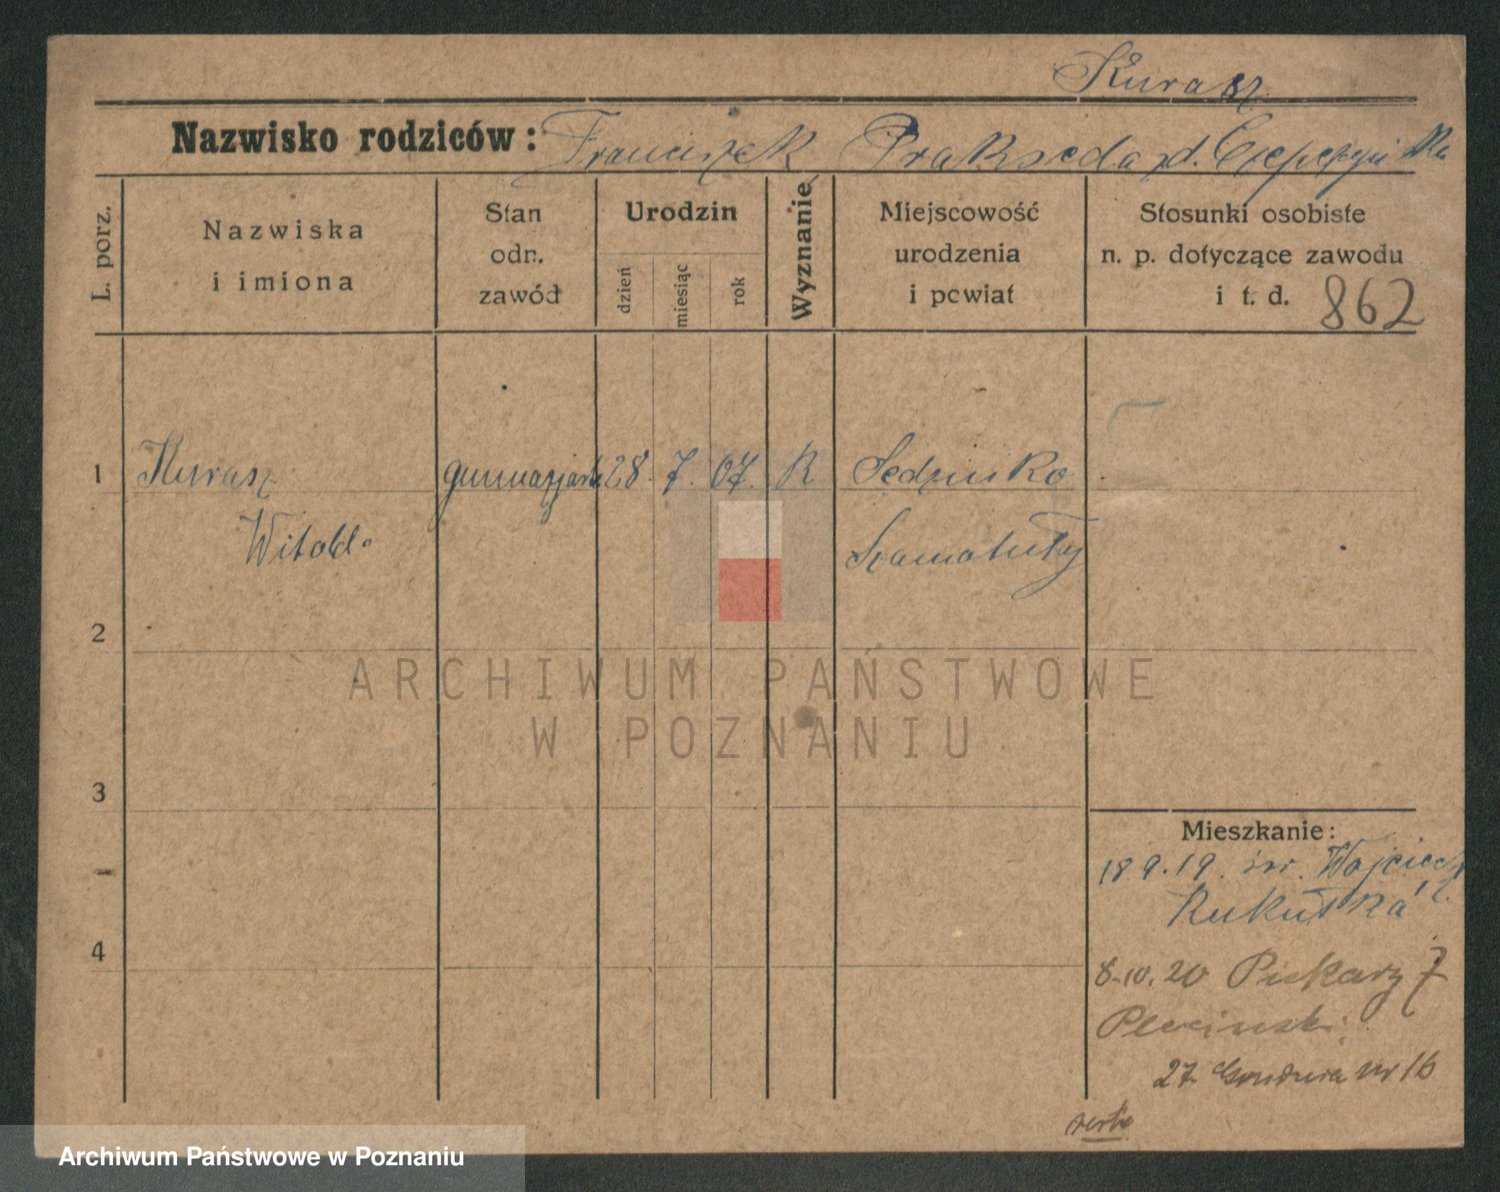 Kurasz
Nazwisko rodziców: Franciszek Prakseda zd.
L. porz.
Nazwiska
i imiona
Stan
odn.
zawód
Urodzin
dzień
miesiąc
rok
Wyznanie
Miejscowość
urodzenia
i powiat
Stosunki osobiste
n. p. dotyczące zawodu
i t. d. 862
1 Kurasz 28. 7. 07. R Sędzinko
Witold Szamotuły
2
ARCHIWUM PAŃSTWOWE
W POZNANIU
3
Mieszkanie:
18.9.19. św. Wojciech
4
8.10.20 Piekary 7
27 nr 16
verte
Archiwum Państwowe w Poznaniu